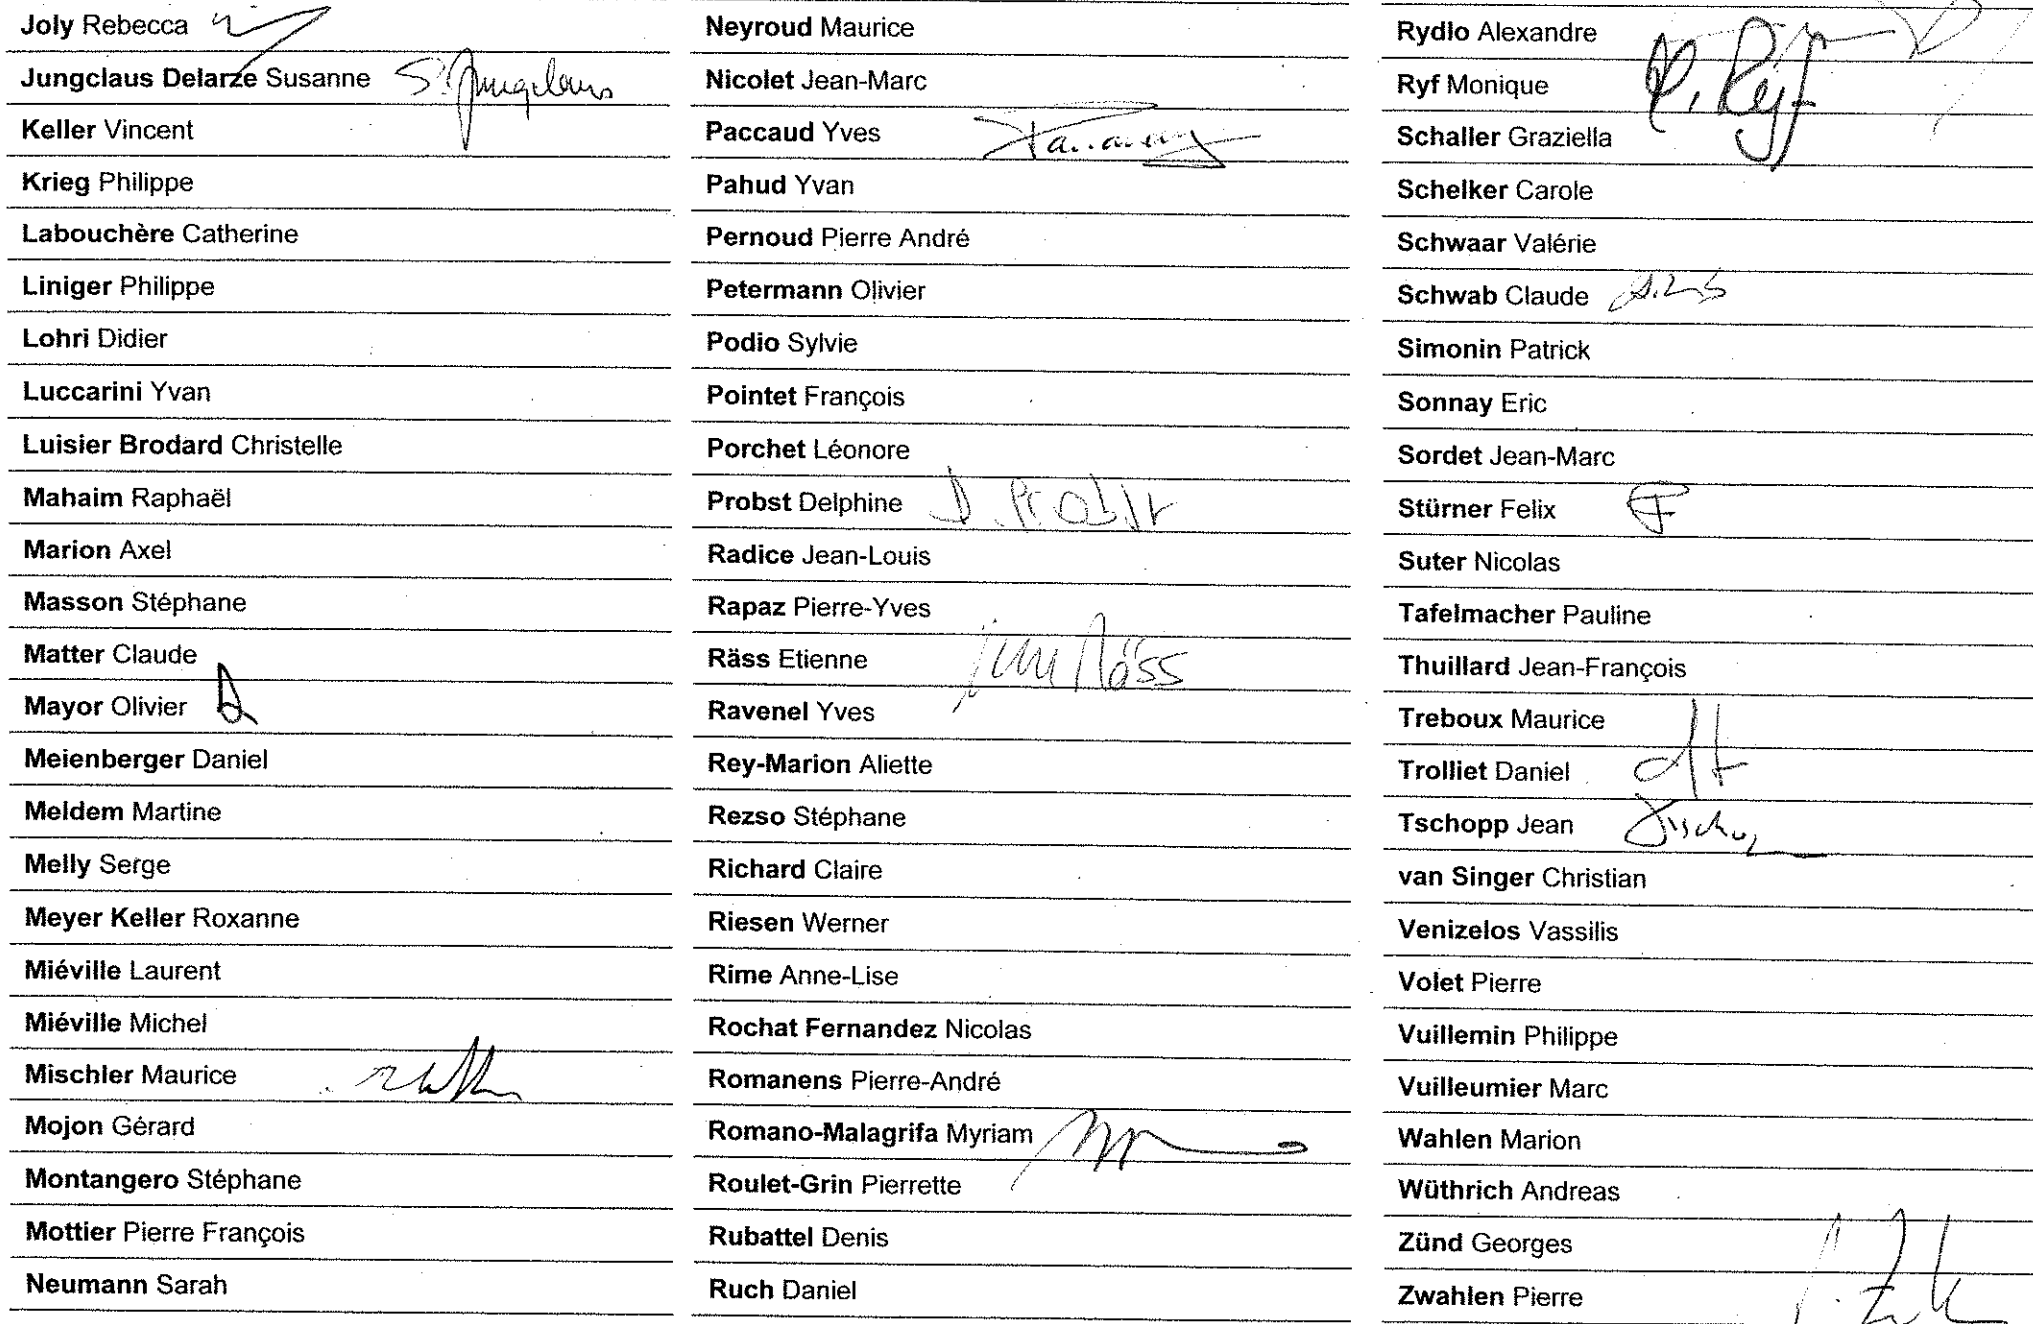 Joly Rebecca
Jungclaus Delarze Susanne S. Jungclaus
Keller Vincent
Krieg Philippe
Labouchère Catherine
Liniger Philippe
Lohri Didier
Luccarini Yvan
Luisier Brodard Christelle
Mahaim Raphaël
Marion Axel
Masson Stéphane
Matter Claude
Mayor Olivier
Meienberger Daniel
Meldem Martine
Melly Serge
Meyer Keller Roxanne
Miéville Laurent
Miéville Michel
Mischler Maurice
Mojon Gérard
Montangero Stéphane
Mottier Pierre François
Neumann Sarah
Neyroud Maurice
Nicolet Jean-Marc
Paccaud Yves
Pahud Yvan
Pernoud Pierre André
Petermann Olivier
Podio Sylvie
Pointet François
Porchet Léonore
Probst Delphine D. Probst
Radice Jean-Louis
Rapaz Pierre-Yves
Räss Etienne Räss
Ravenel Yves
Rey-Marion Aliette
Rezso Stéphane
Richard Claire
Riesen Werner
Rime Anne-Lise
Rochat Fernandez Nicolas
Romanens Pierre-André
Romano-Malagrifa Myriam
Roulet-Grin Pierrette
Rubattel Denis
Ruch Daniel
Rydlo Alexandre
Ryf Monique Ryf
Schaller Graziella
Schelker Carole
Schwaar Valérie
Schwab Claude
Simonin Patrick
Sonnay Eric
Sordet Jean-Marc
Stürner Felix
Suter Nicolas
Tafelmacher Pauline
Thuillard Jean-François
Treboux Maurice
Trolliet Daniel
Tschopp Jean
van Singer Christian
Venizelos Vassilis
Volet Pierre
Vuillemin Philippe
Vuilleumier Marc
Wahlen Marion
Wüthrich Andreas
Zünd Georges
Zwahlen Pierre